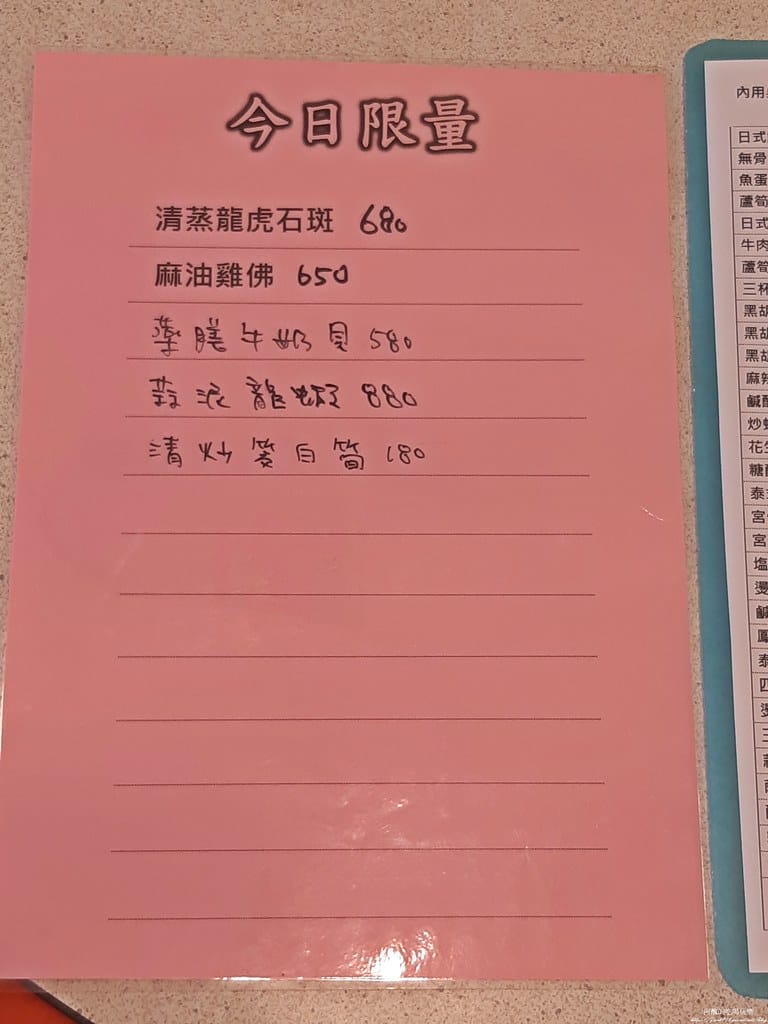 今日限量
清蒸龍虎石斑 680
麻油雞佛 650
藥膳牛奶貝 580
蒜泥龍蝦 880
清炒筊白筍 180
內用
日式
無骨
魚蛋
蘆筍
日式
牛肉
蘆筍
三杯
黑胡
黑胡
黑胡
麻辣
鹹酥
炒
花生
糖醋
泰
宮
宮
塩
燙
鹹
鳳
泰
四
燙
三